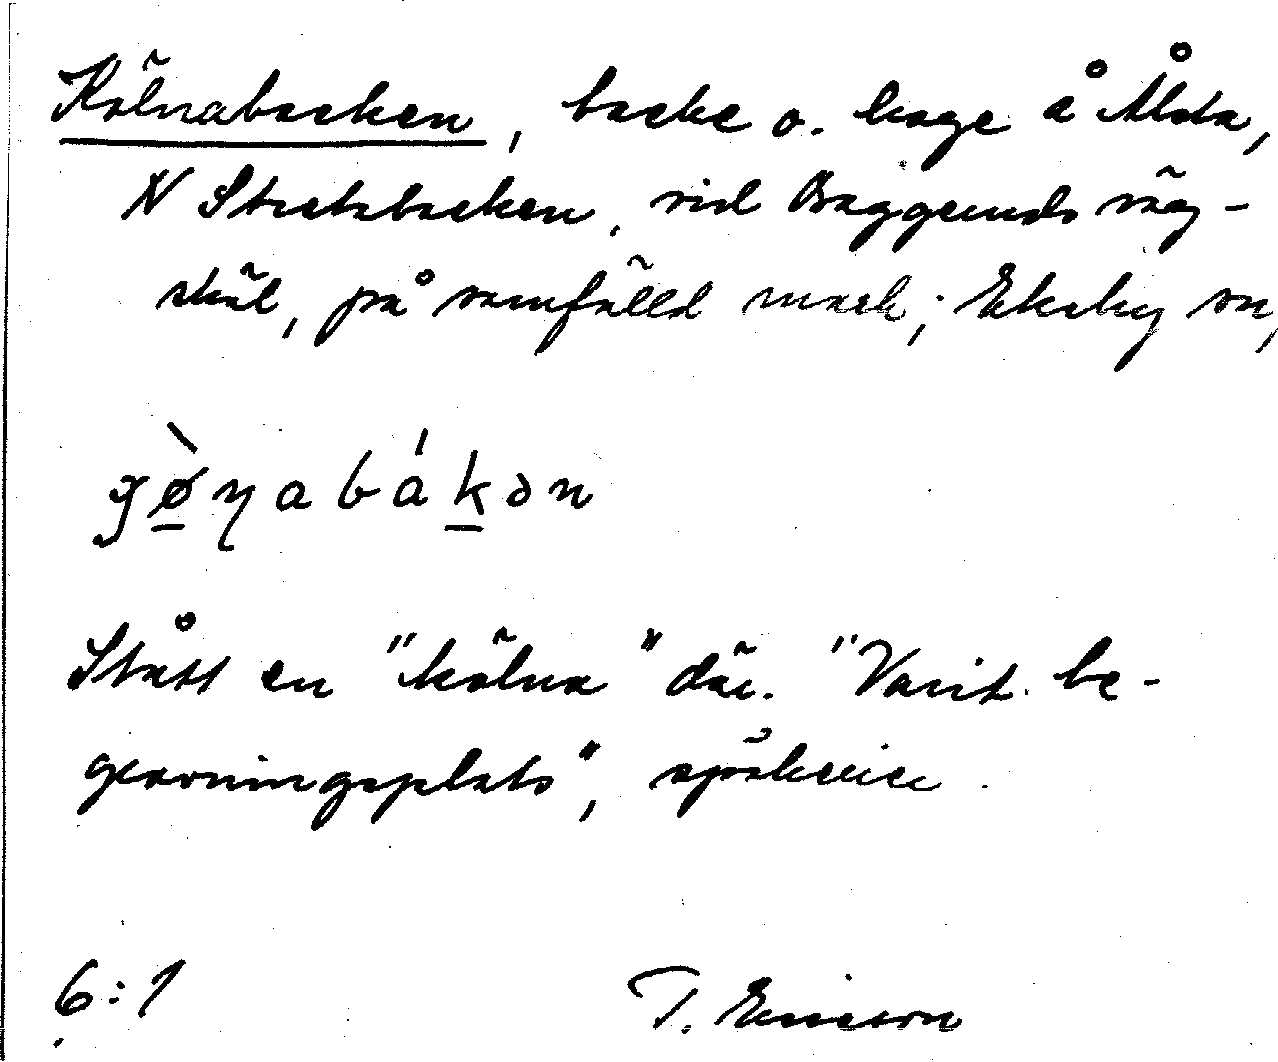 Kölnabacken, backe o. hage å Ålsta,
N Stretsbacken, vid Baggeunds väg-
skäl, på samfälld mark; Ekeby sn,
gø̀ɳabákən
Stått en "kölna" där. "Varit be-
gravningsplats", spökerier.
6:1 T. Ericson